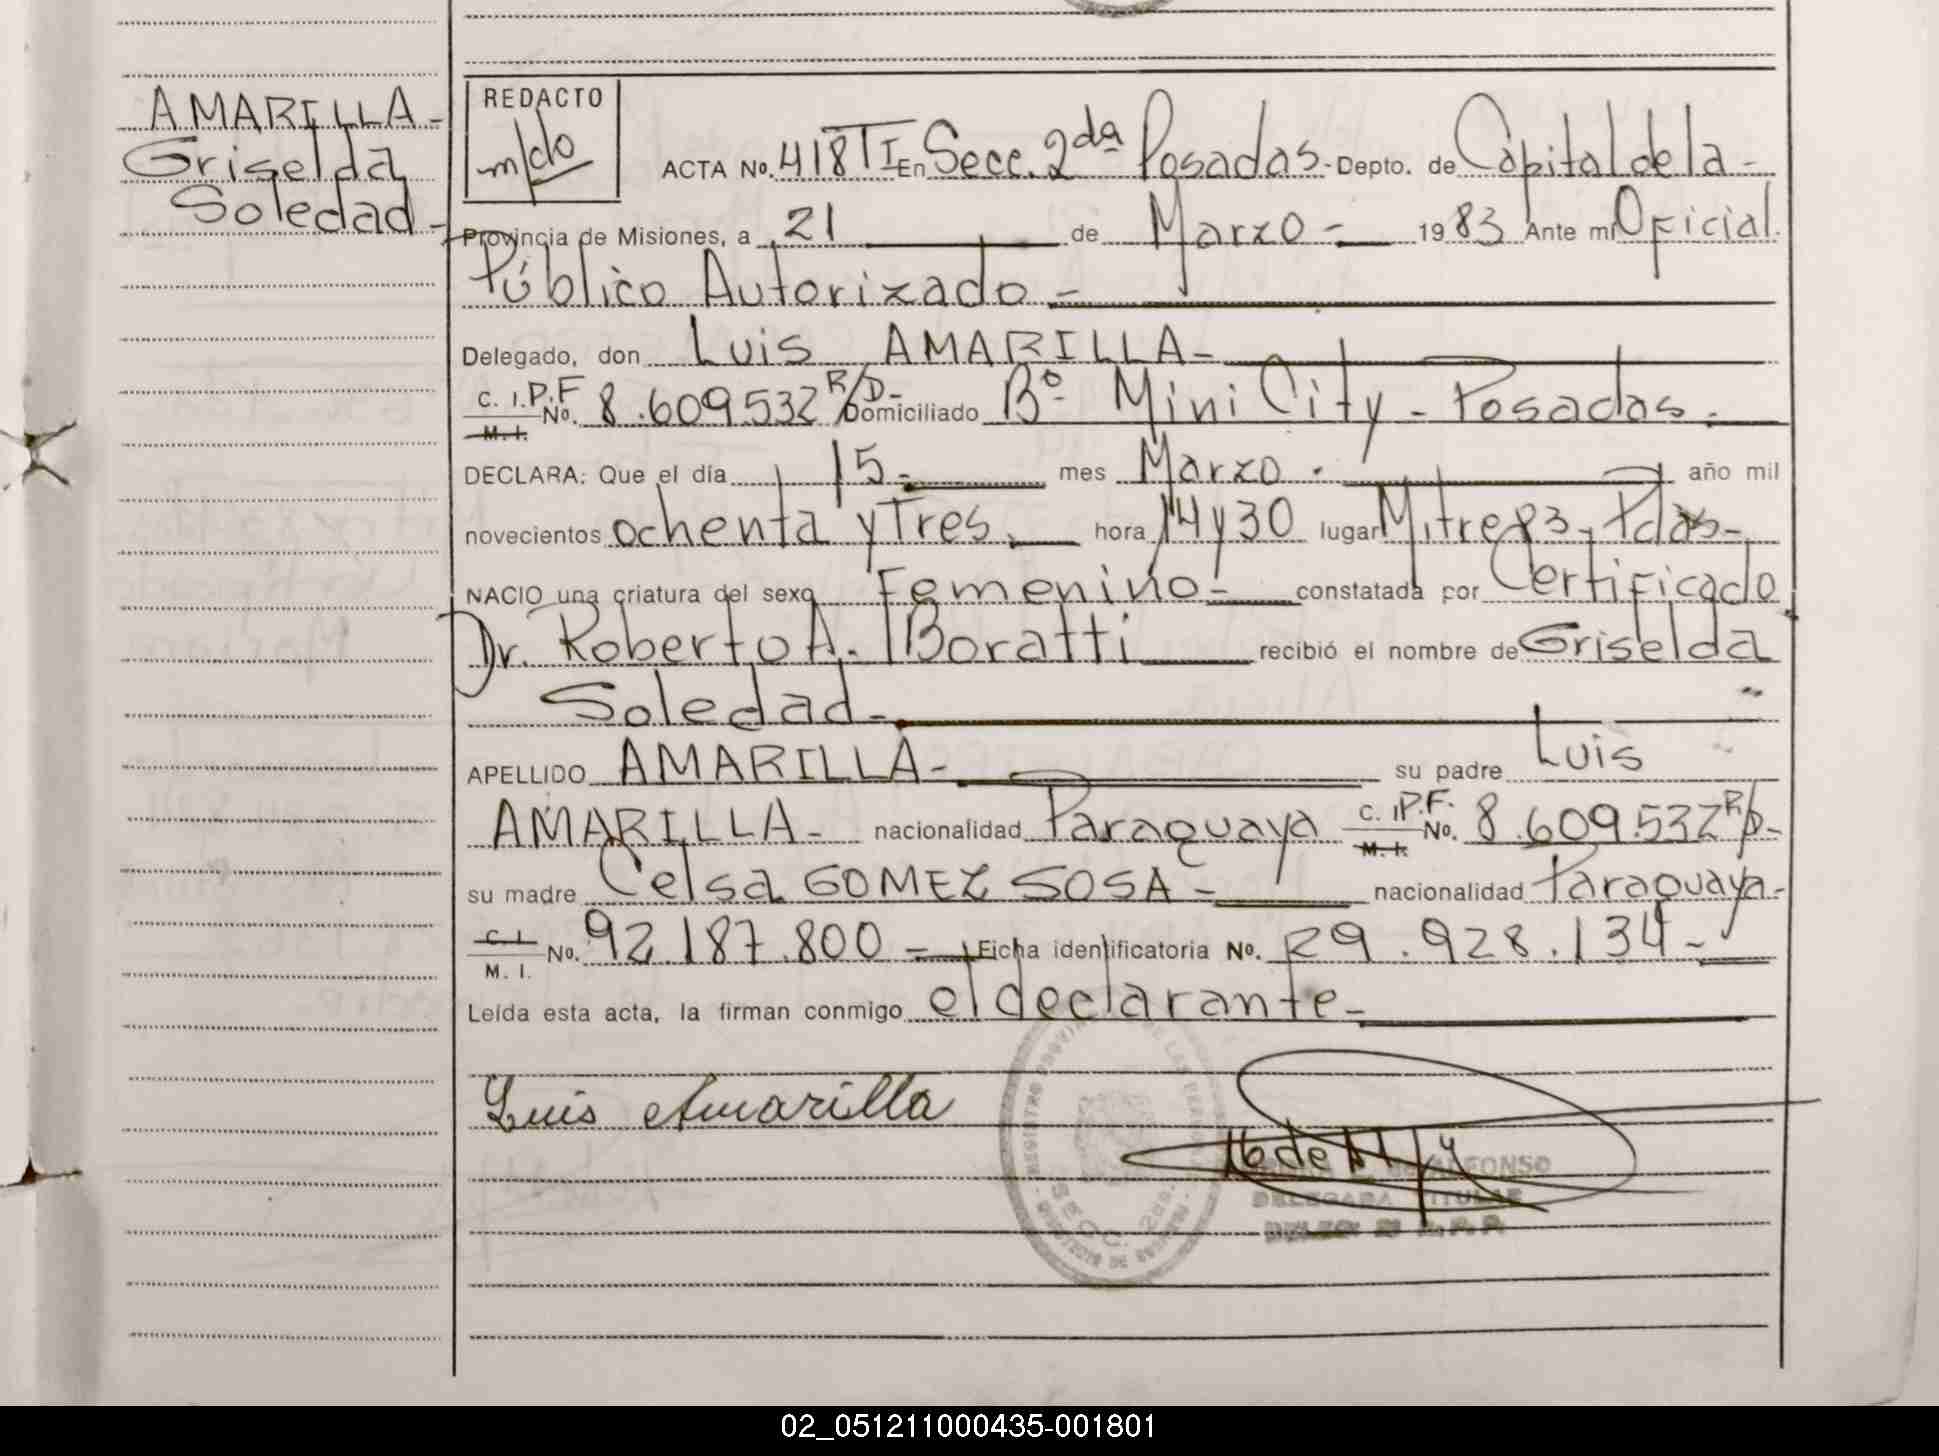 AMARILLA-
Griselda
Soledad-
REDACTO
ACTA No. 418 TI En Secc. 2da Posadas- Depto. de Capital de la-
Provincia de Misiones, a 21 de Marzo- 1983 Ante mi Oficial
Público Autorizado-
Delegado, don Luis AMARILLA-
C. I. P.F No. 8.609.532 R/D- Domiciliado Bº Mini City - Posadas.
M. I.
DECLARA: Que el día 15- mes Marzo. año mil
novecientos ochenta y Tres. hora 14 y 30 lugar Mitre 83, Pdas-
NACIO una criatura del sexo Femenino- constatada por Certificado
Dr. Roberto A. Boratti recibió el nombre de Griselda
Soledad-
APELLIDO AMARILLA- su padre Luis
AMARILLA- nacionalidad Paraguaya C. I. P.F. No. 8.609.532 R/D-
M. I.
su madre Celsa GOMEZ SOSA- nacionalidad Paraguaya-
C. I. No. 92.187.800- Ficha identificatoria No. 29.928.134-
M. I.
Leída esta acta, la firman conmigo el declarante-
Luis Amarilla
ALFONSO
DELEGADA TITULAR
SECC. 2da.
02_051211000435-001801